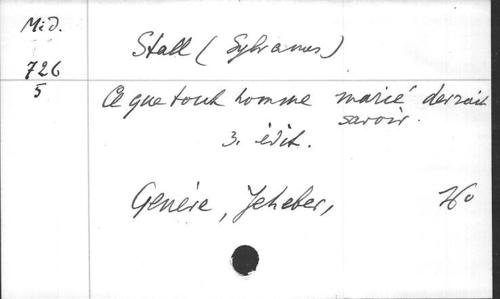 Méd.
726
5
Stall (Sylvanus)
Ce que tout homme marié devrait
savoir.
3. édit.
Genève, Jeheber,